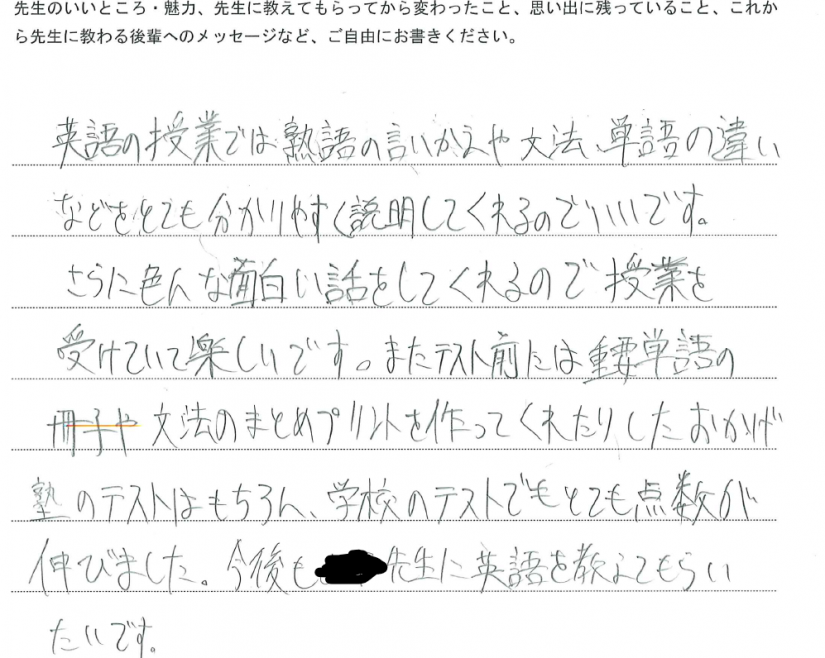 先生のいいところ・魅力、先生に教えてもらってから変わったこと、思い出に残っていること、これか
ら先生に教わる後輩へのメッセージなど、ご自由にお書きください。
英語の授業では熟語の言いかえや文法、単語の違い
などをとても分かりやすく説明してくれるのでいいです。
さらに色んな面白い話をしてくれるので授業を
受けていて楽しいです。またテスト前には重要単語の
冊子や文法のまとめプリントを作ってくれたりしたおかげで
塾のテストはもちろん、学校のテストでもとても点数が
伸びました。今後も先生に英語を教えてもらい
たいです。